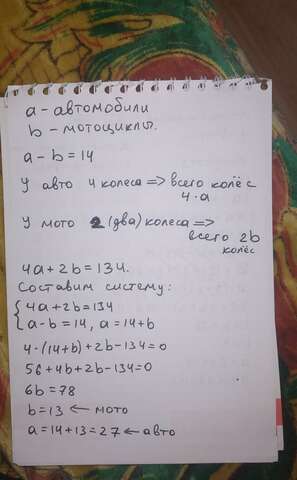 a - автомобили
b - мотоциклы.
a - b = 14
У авто 4 колеса => всего колёс
4·a
У мото 2 (два) колеса =>
всего 2b
колёс
4a + 2b = 134.
Составим систему:
{ 4a + 2b = 134
a - b = 14, a = 14 + b
4·(14+b) + 2b - 134 = 0
56 + 4b + 2b - 134 = 0
6b = 78
b = 13 ← мото
a = 14 + 13 = 27 ← авто